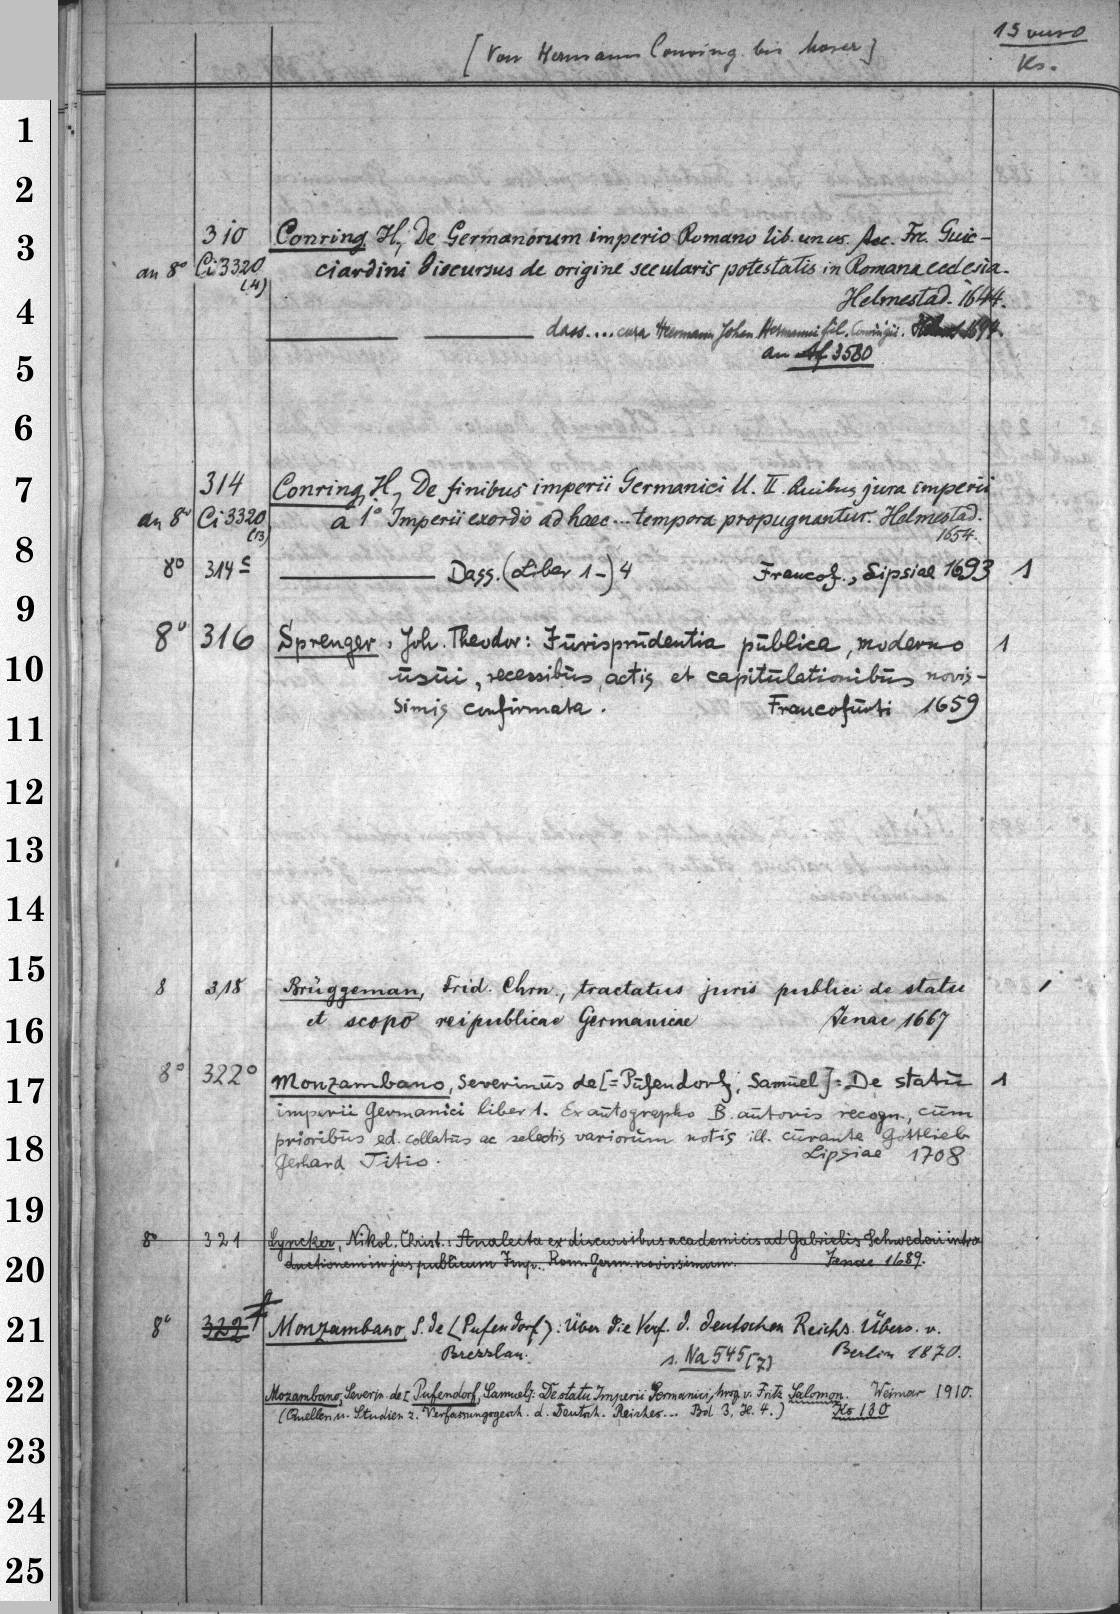 [Von Hermann Conring bis Moser]
Ks.
310 Conring H., De Germanorum imperio Romano lib. unus. Acc. Fr. Guic-
an 8° Ci 3320 (4) ciardini Discursus de origine secularis potestatis in Romana ecclesia.
Helmestad. 1644.
dass. ... cura Hermann Johan Hermanni fil. Conringii. 1694.
an Af 3580
314 Conring, H., De finibus imperii Germanici ll. II. Quibus jura imperii
an 8° Ci 3320 (13) á 1° Imperii exordio ad haec ... tempora propugnantur. Helmestad.
1654.
8° 314 c Dass. (Liber 1-) 4 Francof., Lipsiae 1693 1
8° 316 Sprenger, Joh. Theodor: Jurisprudentia publica, moderno 1
usui, recessibus, actis et capitulationibus novis-
simis confirmata. Francofurti 1659
8 318 Brüggeman, Frid. Chrn., tractatus juris publici de statu
et scopo reipublicae Germanicae Jenae 1667
8° 322° Monzambano, Severinus de [= Pufendorf, Samuel]: De statu 1
imperii Germanici liber 1. Ex autographo B. autoris recogn., cum
prioribus ed. collatus ac selectis variorum notis ill. curante Gottlieb
Gerhard Titio. Lipsiae 1708
8° 321 Lyncker, Nikol. Christ.: Analecta ex discursibus academicis ad Gabrielis Schwederi intro
ductionem in jus publicum Imp. Rom. Germ. novissimum. Jenae 1689.
8° 322 Monzambano, S. de (Pufendorf): Über die Verf. d. deutschen Reichs. Übers. v.
Bresslau. s. Na 545 (7) Berlin 1870.
Mozambano, Severin. de [Pufendorf, Samuel]: De statu Imperii Germanici, hrsg. v. Fritz Salomon. Weimar 1910.
(Quellen u. Studien z. Verfassungsgesch. d. Deutsch. Reiches ... Bd 3, H. 4.) Ks 130
1
2
3
4
5
6
7
8
9
10
11
12
13
14
15
16
17
18
19
20
21
22
23
24
25